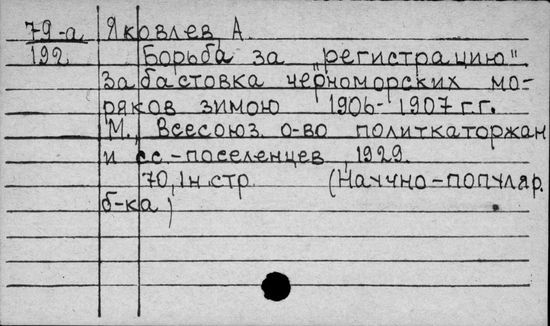 79-а Яковлев, А.
192 Борьба за "регистрацию"
Забастовка черноморских мо-
ряков зимою 1906-1907 г.г.
М., Всесоюз. о-во политкаторжан
и сс.-поселенцев, 1929.
70, 1н.стр. (Научно-популяр.
б-ка)